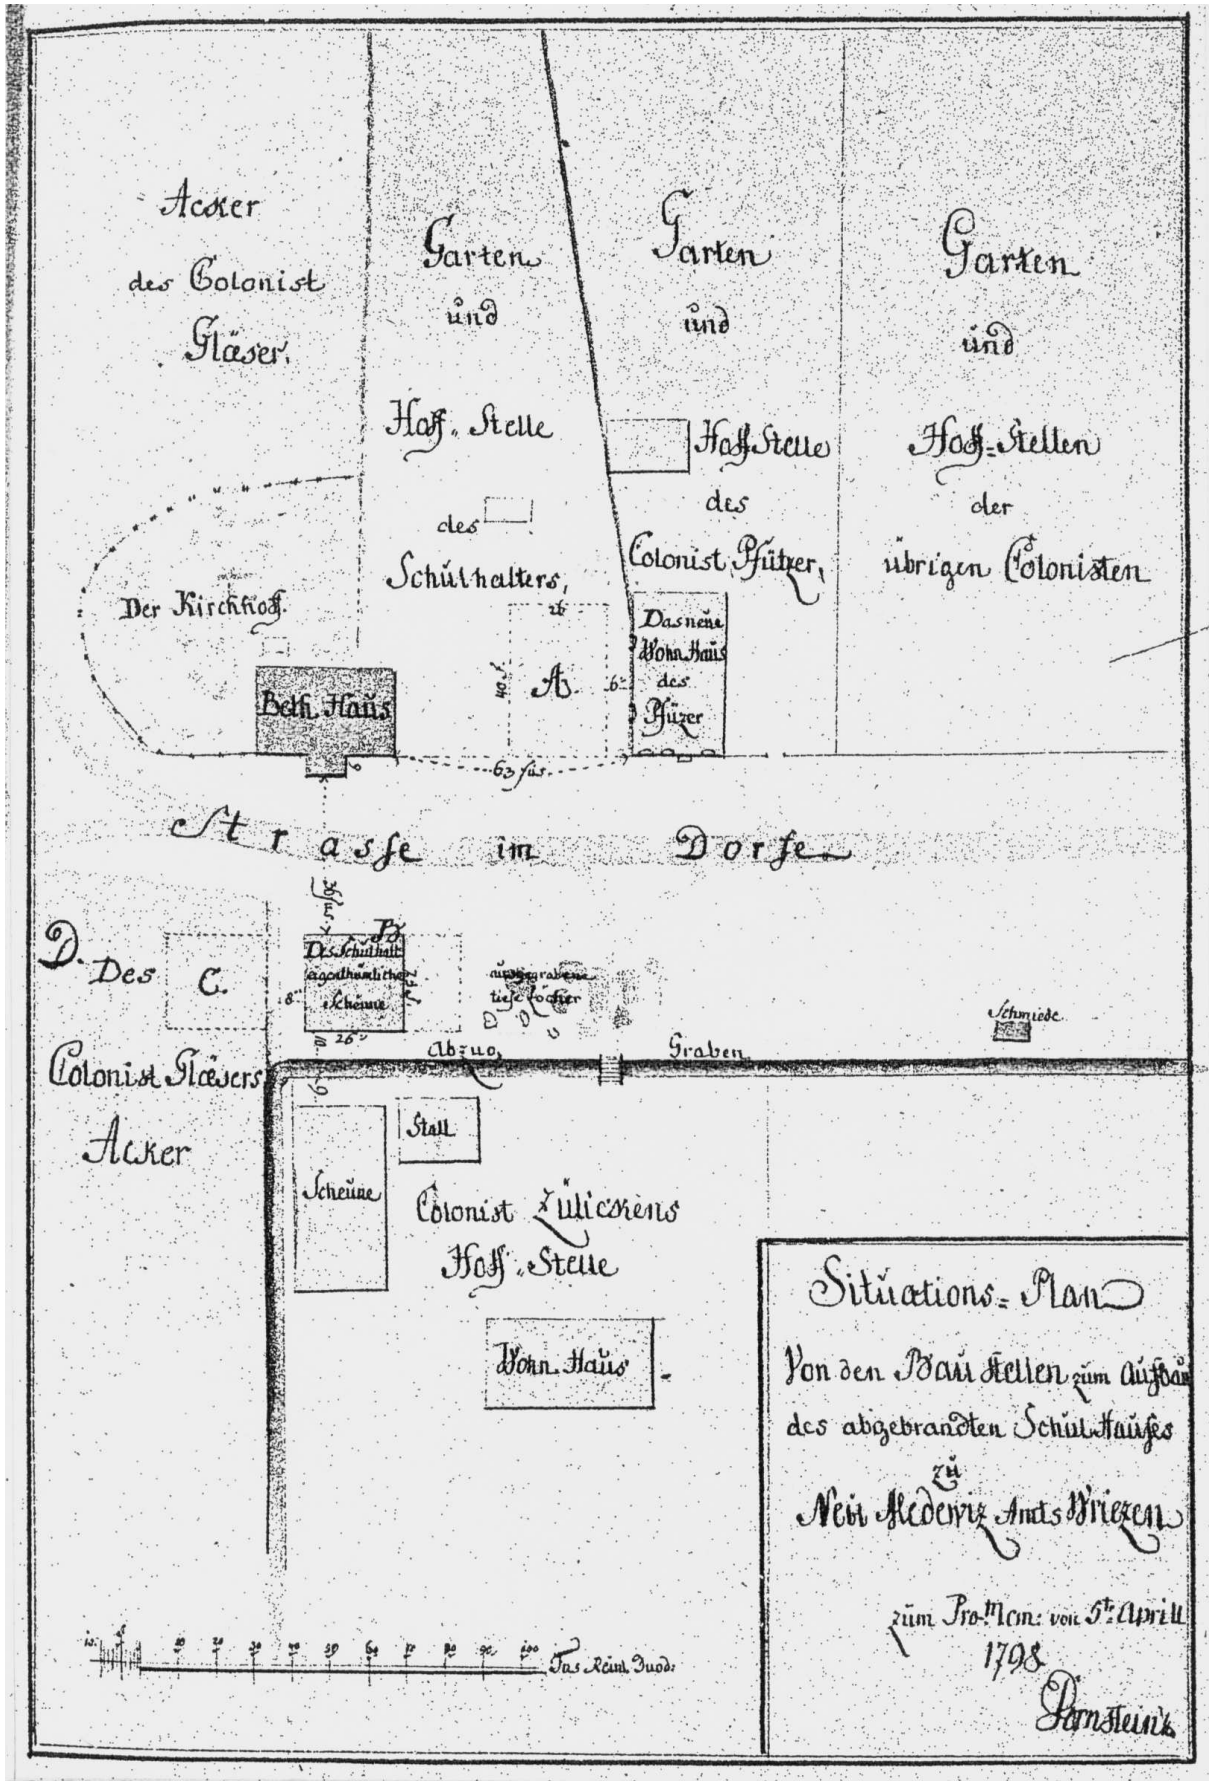 Acker
des Colonist
Gläser.
Garten
und
Hoff-Stelle
des
Schulhalters,
Garten
und
Hoff Stelle
des
Colonist Pfützer,
Garten
und
Hoff=Stellen
der
übrigen Colonisten
Der Kirchhoff.
Beth Haus
26
40 f
A.
6"
Das neue
Wohn Haus
des
Pfüzer
63 fus.
Strasse im Dorfe
36 fus.
D.
Des
C.
Colonist Gläsers
Acker
B
Des Schulhalt
eigenthümliche
Scheune
8"
26"
10
ausgegrabene
tiefe Löcher
Schmiede
Ab=zug
Graben
Scheune
Stall
Colonist Zülickens
Hoff-Stelle
Wohn Haus
Situations=Plan
Von den Bau stellen zum Aufbau
des abgebrandten Schul Hauses
zu
Neu Medewiz Amts Wriezen
zum Pro Mem: von 5t: Aprill
1798
10 5 10 20 30 40 50 60 70 80 90 100 Fus Reinl. Duod: